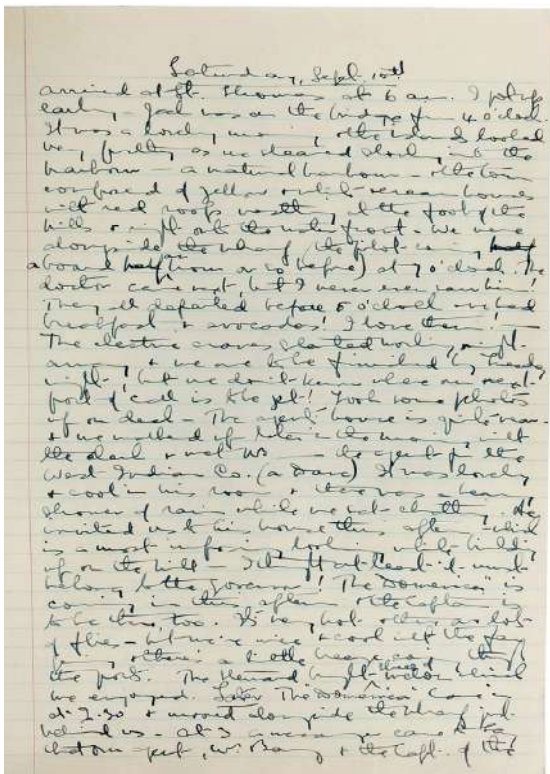 Saturday, Sept. 10th
arrived at St. Thomas at 6 am. I got up
early - Jack was on the bridge from 4 o'clock.
It was a lovely morning & the islands looked
very pretty as we steamed slowly into the
harbour - a natural harbour - & the town
composed of yellow & white houses
with red roofs at the foot of the
hills & right onto the waterfront. We were
alongside the wharf (the pilot coming
aboard half an hour or so before) at 7 o'clock. The
doctor came next, but I never even saw him!
They all departed before 8 o'clock & we had
breakfast & avocados! I love them!
The electric cranes started working right
away & we are to be finished by Tuesday
night, but we don't know where our next
port of call is to be yet! Took some photos
up on deck - The agent's house is quite near
& we walked up later in the morning with
the clerk & met the agent for the
West Indian Co. (a Dane) It was lovely
& cool in his room & there was a heavy
shower of rain while we sat chatting. He
invited us to his house this afternoon which
is a most imposing looking white building
up on the hill - I thought at least it must
belong to the Governor! The "Dominica" is
coming in this afternoon & the Captain is
to be there too. It's very hot & a lot
of flies - but we're nice & cool with the fan
& there's a little breeze coming through
the ports. The Steward bought a melon which
we enjoyed. Later The "Dominica" came in
at 2.30 & moored alongside the wharf just
behind us - at 3 a messenger came to
& the Capt. of the